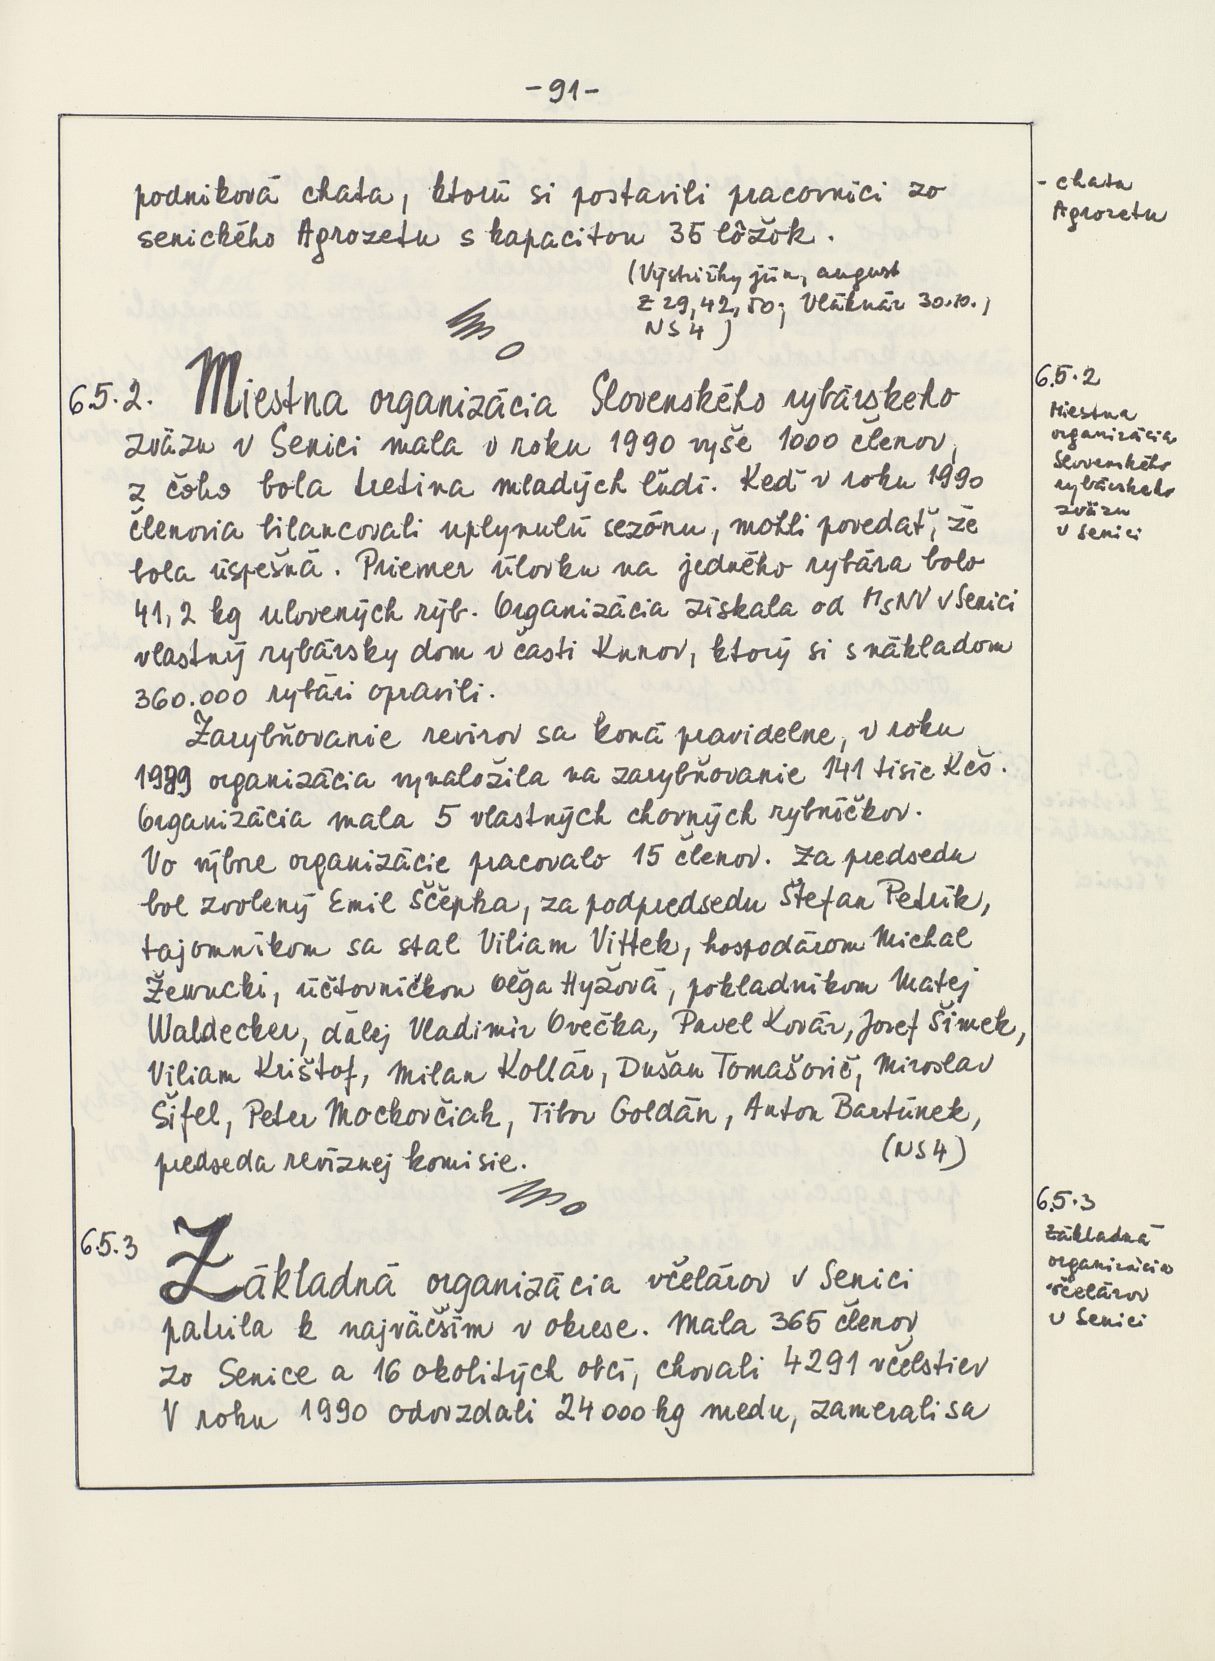 -91-
podniková chata, ktorú si postavili pracovníci zo
senického Agrozetu s kapacitou 35 lôžok.
(Výstrižky jún, august
Z 29, 42, 50; Vláknár 30.10.,
NS 4)
6.5.2. Miestna organizácia Slovenského rybárskeho
zväzu v Senici mala v roku 1990 vyše 1000 členov,
z čoho bola tretina mladých ľudí. Keď v roku 1990
členovia bilancovali uplynulú sezónu, mohli povedať, že
bola úspešná. Priemer úlovku na jedného rybára bolo
41,2 kg ulovených rýb. Organizácia získala od MsNV v Senici
vlastný rybársky dom v časti Kunov, ktorý si s nákladom
360.000 rybári opravili.
Zarybňovanie revírov sa koná pravidelne, v roku
1989 organizácia vynaložila na zarybňovanie 141 tisíc Kčs.
Organizácia mala 5 vlastných chovných rybníčkov.
Vo výbore organizácie pracovalo 15 členov. Za predsedu
bol zvolený Emil Ščepka, za podpredsedu Štefan Petrík,
tajomníkom sa stal Viliam Vittek, hospodárom Michal
Žewucki, účtovníčkou Oľga Hyžová, pokladníkom Matej
Waldecker, ďalej Vladimír Ovečka, Pavel Kovár, Jozef Šimek,
Viliam Krištof, Milan Kollár, Dušan Tomašovič, Miroslav
Šifel, Peter Mockovčiak, Tibor Goldán, Anton Bartúnek,
predseda revíznej komisie. (NS4)
6.5.3 Základná organizácia včelárov v Senici
patrila k najväčším v okrese. Mala 365 členov
zo Senice a 16 okolitých obcí, chovali 4291 včelstiev
V roku 1990 odovzdali 24 000 kg medu, zamerali sa
- chata
Agrozetu
6.5.2
Miestna
organizácia
Slovenského
rybárskeho
zväzu
v Senici
6.5.3
Základná
organizácia
včelárov
v Senici